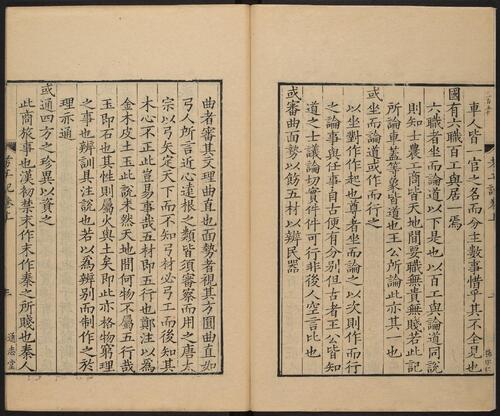 車人皆一官之名而分主數事惜乎其不全見也
國有六職百工與居一焉
六職者坐而論道以下是也以百工與論道同說
則知士農工商皆天地間要職無貴無賤若此記
所論車蓋等象皆道也王公所論此亦其一也
或坐而論道或作而行之
以坐對作作起也尊者坐而論之以次則作而行
之論事與任事自古便有分別但古者王公皆知
道之士議論切實件件可行非後人空言比也
或審曲面勢以飭五材以辨民器
曲者審其文理曲直也面勢者視其方圓曲直如
弓人所言近心遠根之類皆須審察而用之唐太
宗以弓矢定天下而不知弓材必弓工而後知其
木心不正此豈易事哉五材即五行也鄭注以為
金木皮玉土此說未然天地間何物不屬五行哉
玉即石也其性則屬火與土矣即此亦格物窮理
之事也辨訓具注說也若以為辨別而制作之於
理亦通
或通四方之珍異以資之
此商旅事也漢初禁末作末作秦之所賤也秦人
考工記卷上
通志堂